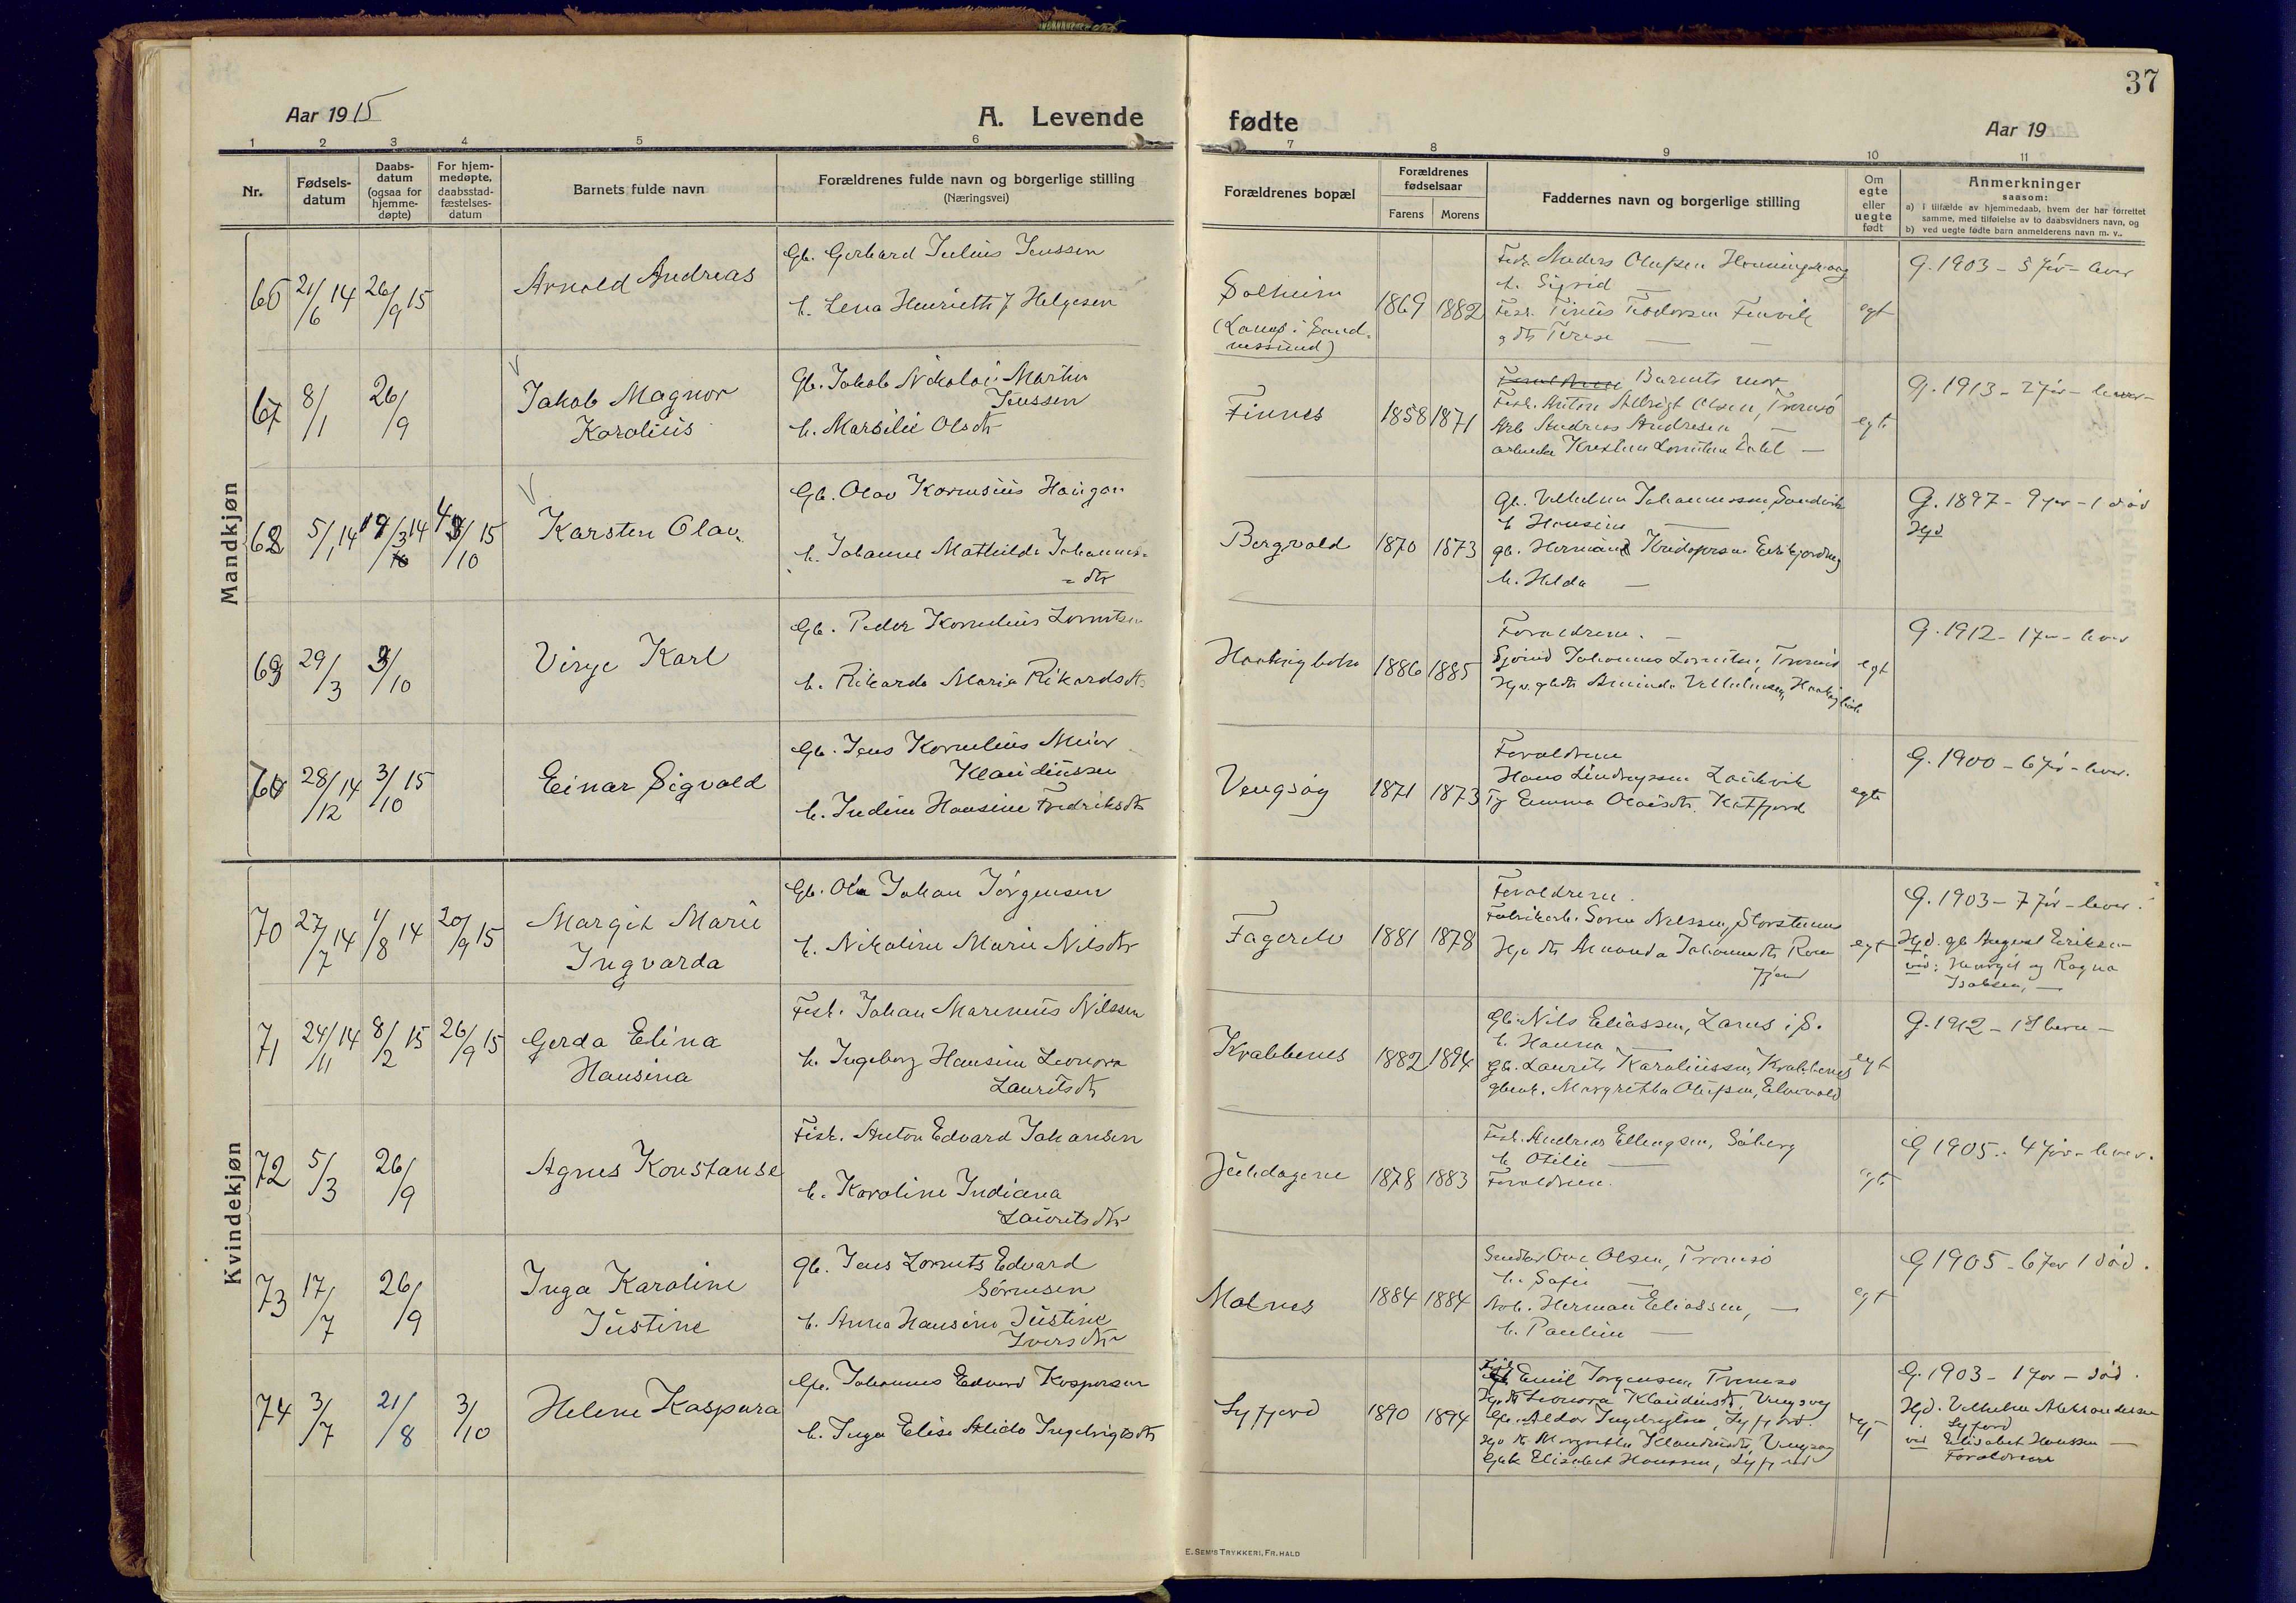 37
Aar 1915
A. Levende
fødte
Aar 19
1 2 3 4 5 6 7 8 9 10 11
Nr.
Fødsels-
datum
Daabs-
datum
(ogsaa for
hjemme-
døpte)
For hjem-
medøpte,
daabsstad-
fæstelses-
datum
Barnets fulde navn
Forældrenes fulde navn og borgerlige stilling
(Næringsvei)
Forældrenes bopæl
Forældrenes
fødselsaar
Farens Morens
Faddernes navn og borgerlige stilling
Om
egte
eller
uegte
født
Anmerkninger
saasom:
a) i tilfælde av hjemmedaab, hvem der har forrettet
samme, med tilføielse av to daabsvidners navn, og
b) ved uegte fødte barn anmelderens navn m. v..
Mandkjøn
66 21/6 14 26/9 15
Arnold Andreas
Gb. Gerhard Julius Jenssen
h. Lena Henriette J Helgesen
Solheim
(Lanes i Sand-
nessund)
1869 1882
Fisk. Anders Olufsen Henningsvaag
h. Sigrid —
Fisk. Tinius Teodorsen Finvik
g dtr Terese — —
egt
G. 1903 - 5 før - lever
67 8/1 26/9
Jakob Magnor
Karolius
Gb. Jakob Nikolai Martin
Jenssen
h. Marsilie Olsdtr
Finnes
1858 1871
Barnets mor
Fisk. Anton Albrigt Olsen, Tromsø
Arb Andreas Andresen —
egte
G. 1913 - 2 før - lever -
68 5/1 14 4/10 15
Karsten Olav
Gb. Olav Kornelius Haugan
h. Johanne Mathilde Johannes-
- dtr
Bergvold
1870 1873
gb. Vilhelm Johannessen, Sandvik
h Hansine —
h. Helda —
G. 1897 - 9 før - 1 død
Hjd
69 29/3 3/10
Virge Karl
Gb. Peder Kornelius Lorentsen
h. Rikarda Maria Rikardsdtr
1886 1885
Forældrene. —
Sjømd Johannes Lorentsen, Tromsø
egt
G. 1912 - 1 før - lever
28/12 14 3/10 15
Einar Sigvald
Gb. Jens Kornelius Meier
Klaudiussen
h. Indine Hansine Fredriksdtr
Vengsøy
1871 1873
Forældrene
Tj Emma Olaisdtr. Katfjord
egte
G. 1900 - 6 før - lever.
Kvindekjøn
70 27/7 14 1/8 14 20/9 15
Margit Marie
Ingvarda
Gb. Ola Johan Jørgensen
h. Nikoline Marie Nilsdtr
Fagerelv
1881 1878
Forældrene.
Fabrikarb. Søren Nilssen, Storsteines
egt
G. 1903 - 7 før - lever.
Hjd. gb August Eriksen
vid: Margit og Ragna
71 24/11 14 8/2 15 26/9 15
Gerda Elina
Hansina
Fisk. Johan Marenius Nilssen
h. Ingeborg Hansine Leonora
Lauritsdtr
Krabbenes
1882 1894
Gb. Nils Eliassen, Lanes i S.
h. Hanna —
gb. Laurits Karoliussen, Krabbenes
gbenk. Margretha Olufsen, Elvevold
egt
G. 1912 - 1ste barn -
72 5/3 26/9
Agnes Konstanse
Fisk. Anton Edvard Johansen
h. Karoline Indiana
Lauritsdtr
1878 1883
Fisk. Andreas Ellingsen, Søberg
h. Otilie —
Forældrene.
egt
G 1905. - 4 før - lever.
73 17/7 26/9
Inga Karoline
Justine
gb. Jens Lorents Edvard
Sørensen
h. Anna Hansine Justine
Iversdtr
Molnes
1884 1884
Ove Olsen, Tromsø
h. Sofie —
Arb. Herman Eliassen, —
h. Pauline —
egt
G 1905 - 6 før 1 død.
74 3/7 21/8 3/10
Helene Kaspara
Gb. Johannes Edvard Kaspersen
h. Inga Elise Alida Ingebrigtsdtr
Lyfjord
1890 1894
Fisk Emil Jørgensen, Tromsø
Hjp dtr Leonora Klaudiusdtr, Vengsøy
Gb. Aldor Ingebrigtsen, Lyfjord.
Hjp dtr Margretha Klaudiusdtr, Vengsøy
Gbk Elisabet Hanssen, Lyfjord
egt
G. 1903 - 1 før - død.
Hjd. Vilhelm Aleksandersen
Lyfjord
vid Elisabet Hanssen —
Forældrene
E. SEM'S TRYKKERI, FR.HALD